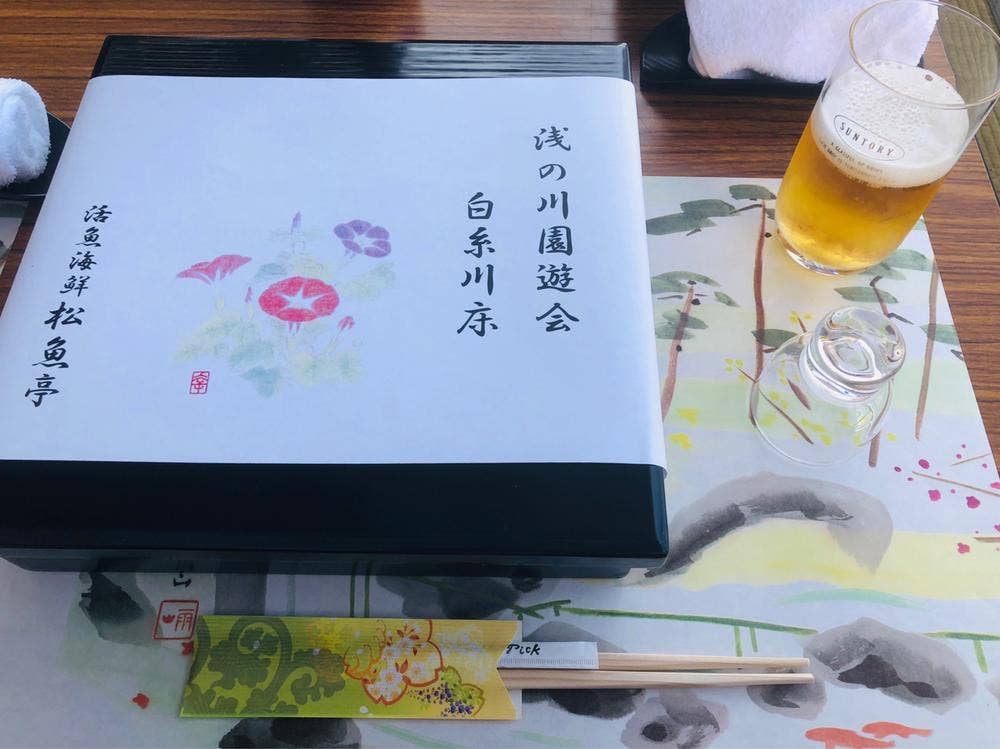 浅の川園遊会
白糸川床
活魚海鮮 松魚亭
SUNTORY
Pick
山